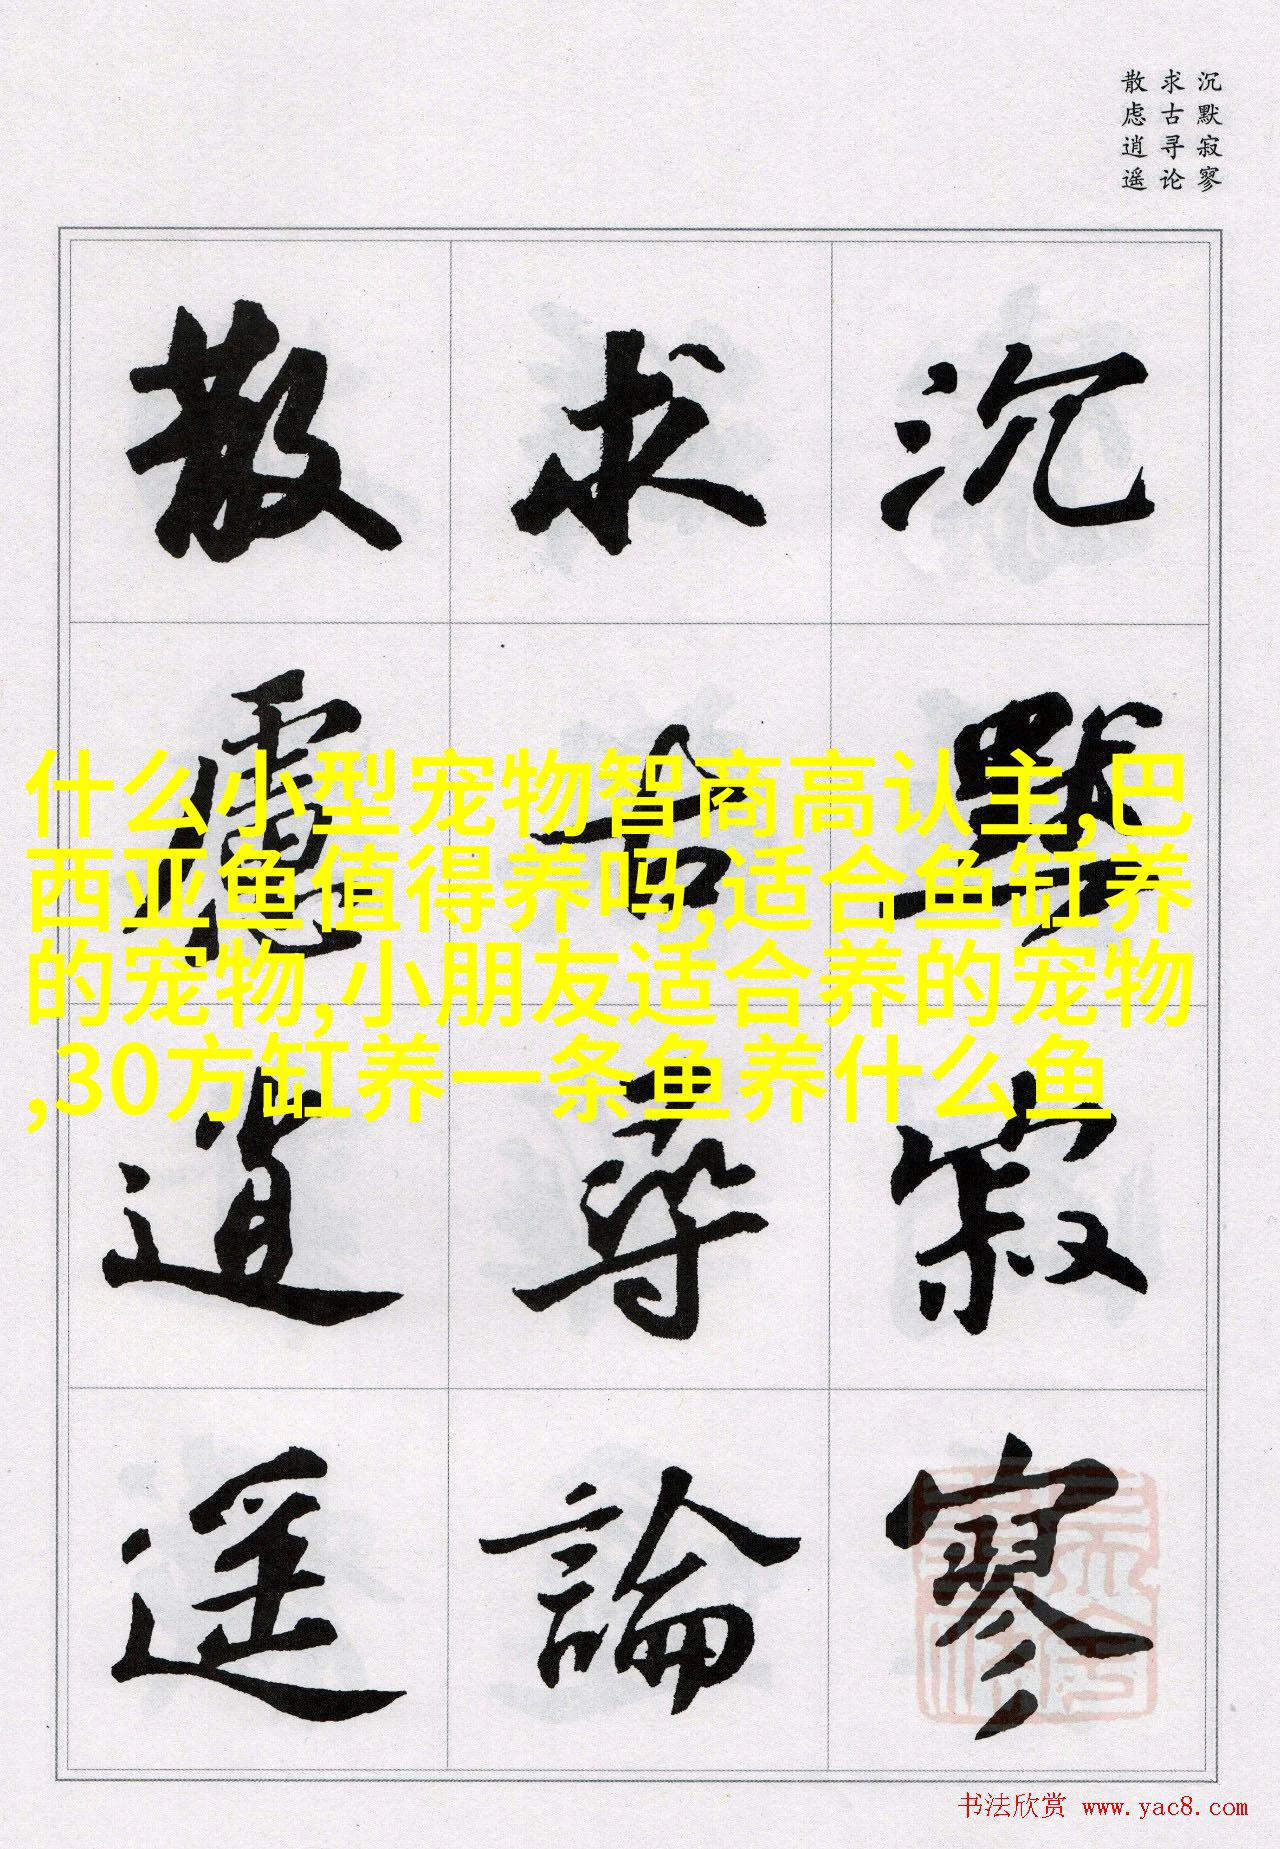 沉默寂寥
求古寻论
散虑逍遥
沉默寂寥
求古尋論
散慮逍遥
什么小型宠物智商高认主,巴
西亚鱼值得养吗,适合鱼缸养
的宠物,小朋友适合养的宠物
,30方缸养一条鱼养什么鱼
书法欣赏 www.yac8.com